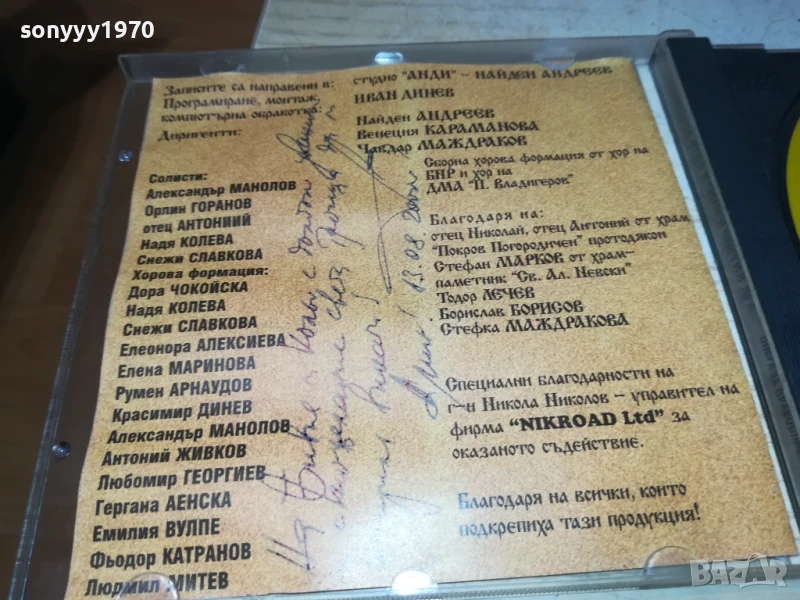 sonyyy1970
Записите са направени в: студио "АНДИ" – НАЙДЕН АНДРЕЕВ
Програмиране, монтаж, ИВАН ДИНЕВ
компютърна обработка:
Диригенти: НАЙДЕН АНДРЕЕВ
ВЕНЕЦИЯ КАРАМАНОВА
ЧАВДАР МАЖДРАКОВ
Солисти:
Александър МАНОЛОВ
Орлин ГОРАНОВ
отец АНТОНИИЙ
Надя КОЛЕВА
Снежи СЛАВКОВА
Хорова формация:
Дора ЧОКОЙСКА
Надя КОЛЕВА
Снежи СЛАВКОВА
Елеонора АЛЕКСИЕВА
Елена МАРИНОВА
Румен АРНАУДОВ
Красимир ДИНЕВ
Александър МАНОЛОВ
Антоний ЖИВКОВ
Любомир ГЕОРГИЕВ
Гергана АЕНСКА
Емилия ВУЛПЕ
Фьодор КАТРАНОВ
Людмил МИТЕВ
Сборна хорова формация от хор на
БНР и хор на
ДМА "П. Владигеров"
Благодаря на:
отец Николай, отец Антоний от храм
"Покров Погородичен" протодякон
Стефан МАРКОВ от храм-
паметник "Св. Ал. Невски"
Тодор ЛЕЧЕВ
Борислав БОРИСОВ
Стефка МАЖДРАКОВА
Специални благодарности на
г-н Никола Николов – управител на
фирма "NIKROAD Ltd" за
оказаното съдействие.
Благодаря на всички, които
подкрепиха тази продукция!
На
13.08.
BAZAR